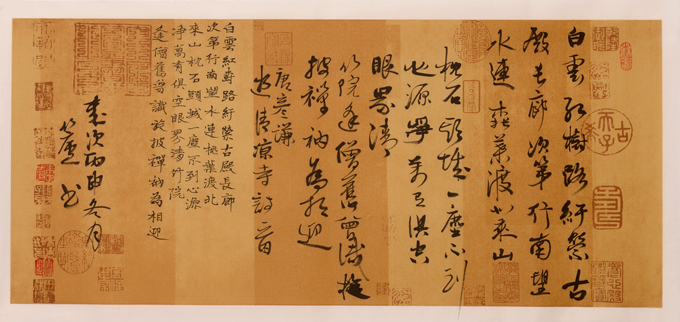 白雲紅樹路紆縈古
殿長廊次第行南望
水連桃葉渡北來山
枕石頭城一塵不到
心源淨萬有俱空
眼界清
竹院逢僧舊曾識旋
披禪衲為相迎
唐彥謙
遊清涼寺詩一首
白雲紅樹路紆縈古殿長廊
次第行南望水連桃葉渡北
來山枕石頭城一塵不到心源
淨萬有俱空眼界清竹院
逢僧舊曾識旋披禪衲為相迎
歲次丙申冬月
書
古希天子